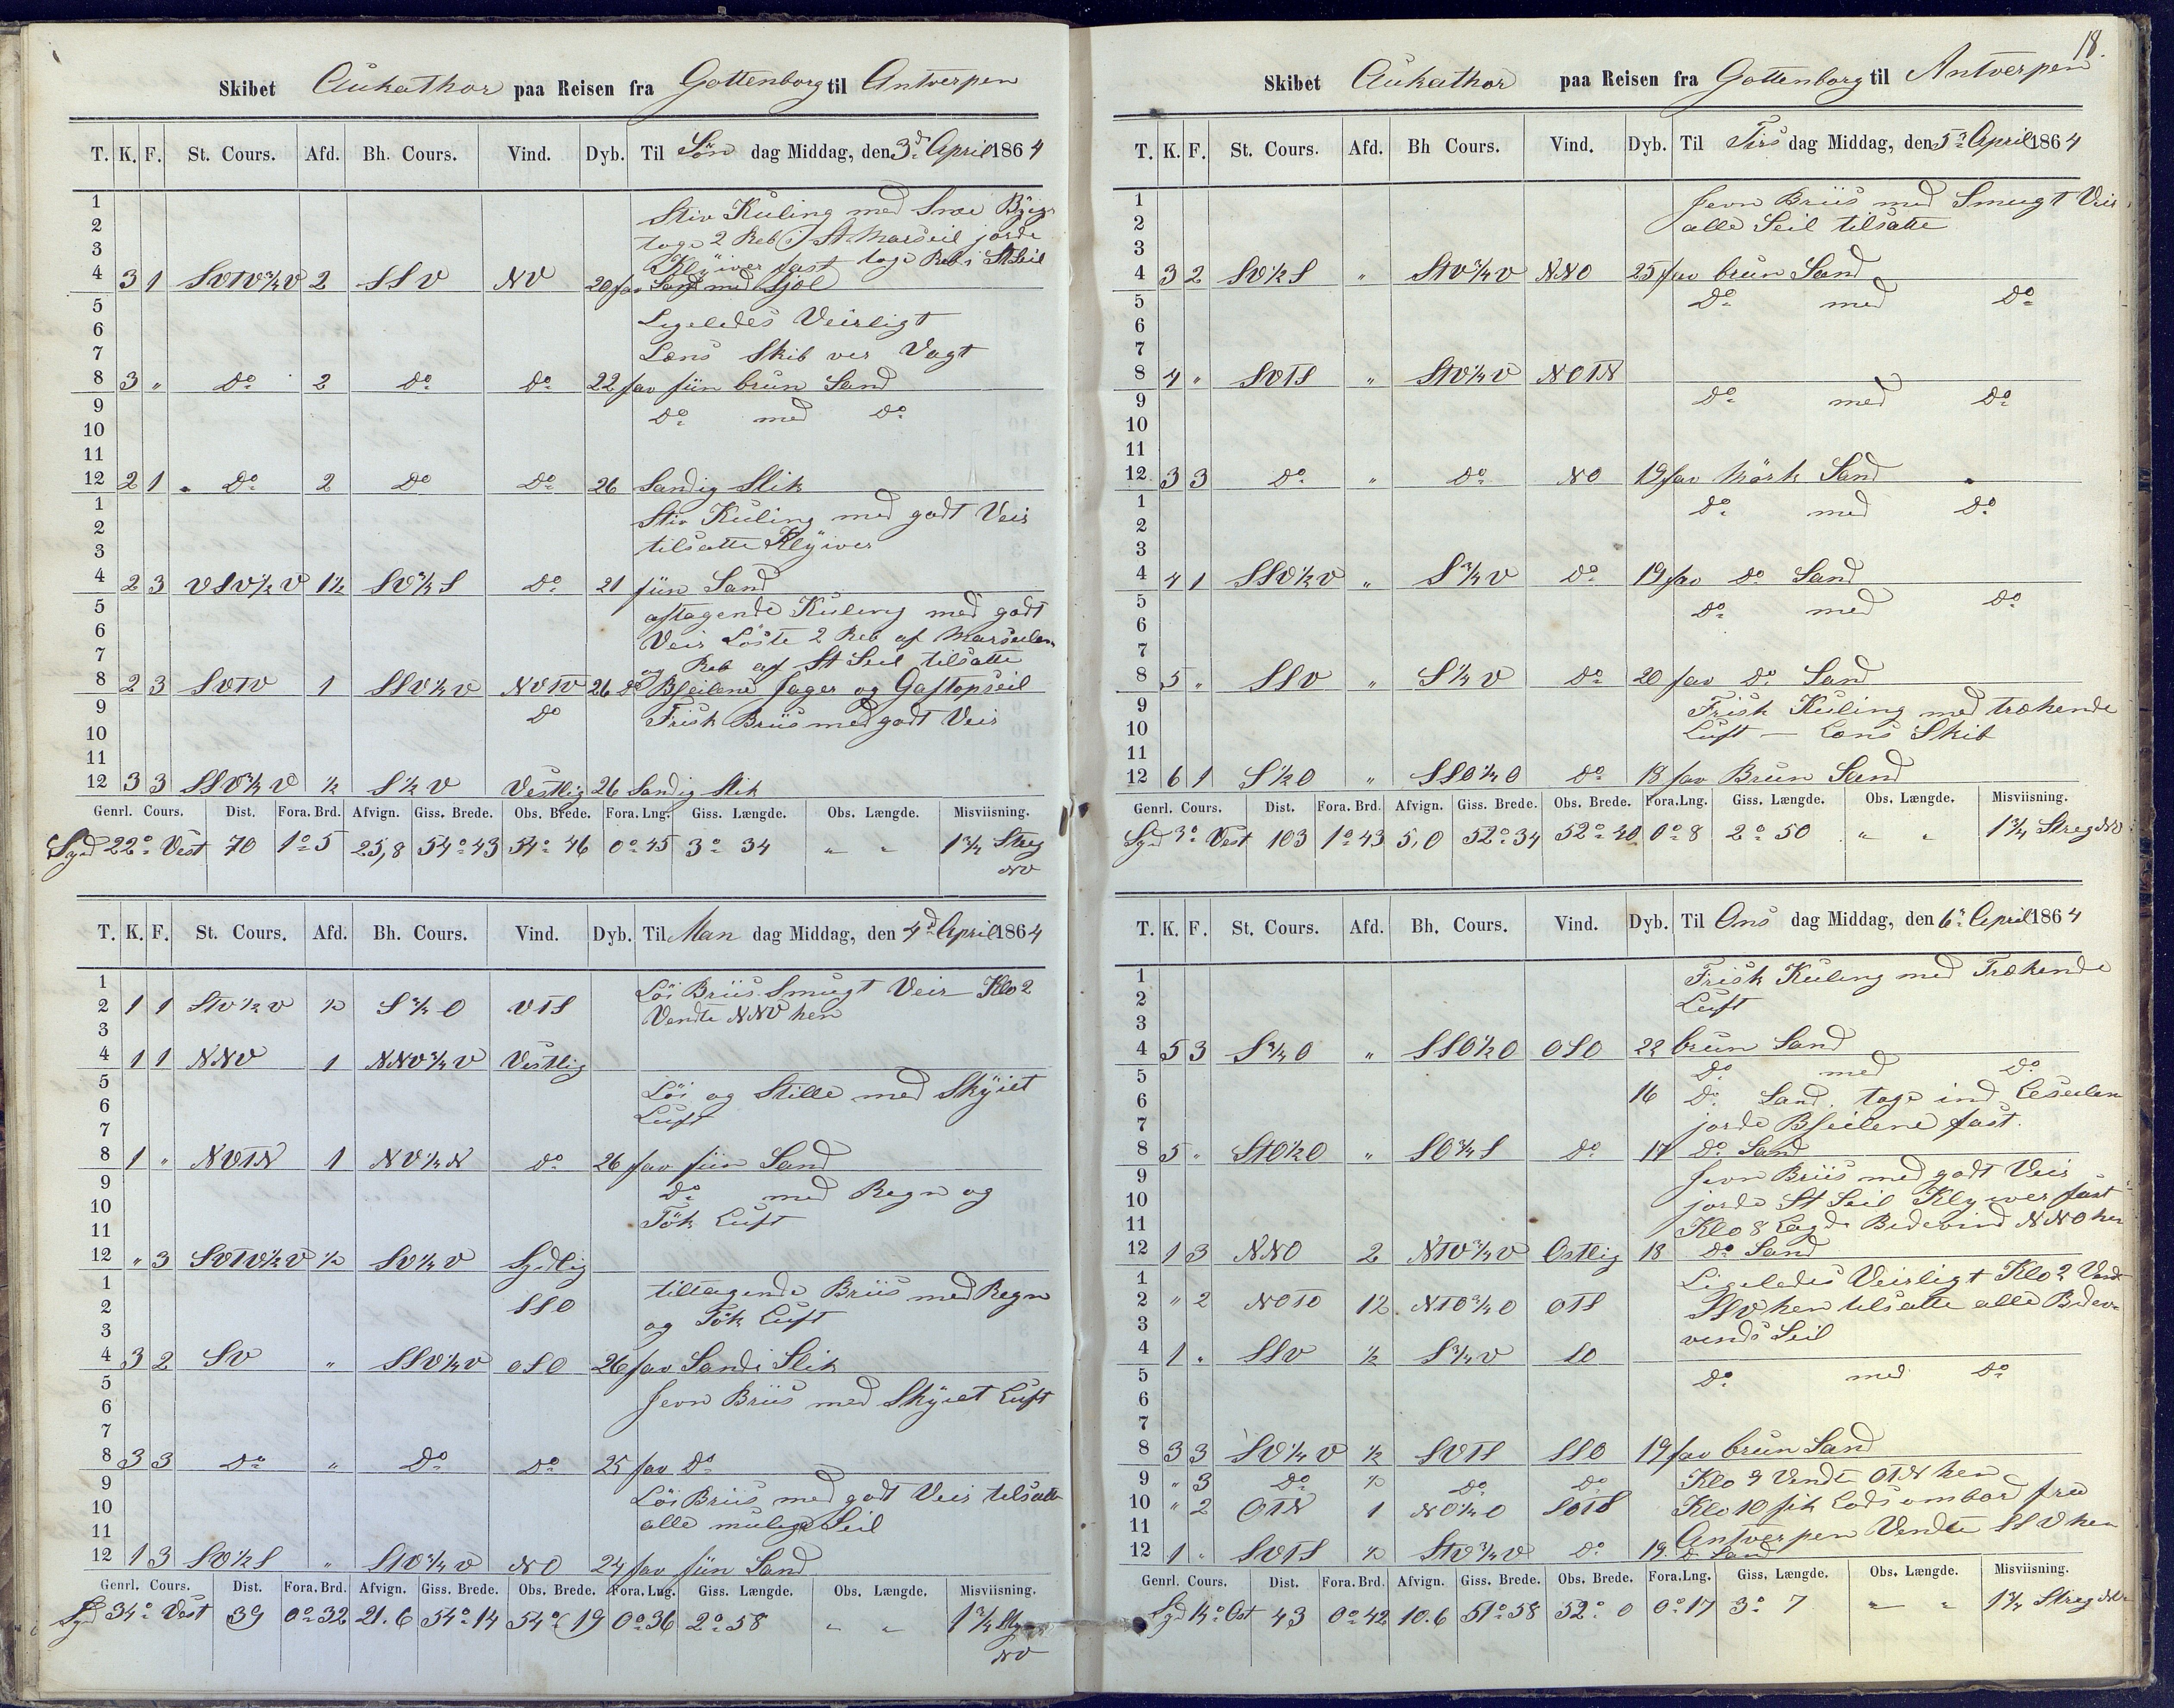 Skibet Aukathor paa Reisen fra Gottenborg til Antverpen
T. K. F. St. Cours. Afd. Bh. Cours. Vind. Dyb. Til Søn dag Middag, den 3d April 1864
1 Stiv Kuling med Snee Byger
2 toge 2 Reb i St Marseil jorde
3 Klÿiver fast toge Reb i St Seil
4 3 1 SVTV¾V 2 SSV NV 20 fav Sand med Sjøl
5 Ligeledes Veirligt
6
7 Lens Skib ver Vagt
8 3 " Do 2 Do Do 22 fav fiin brun Sand
9 Do med Do
10
11
12 2 1 Do 2 Do Do 26 Sandig Slik
1 Stiv Kuling med godt Veir
2 tilsatte Klÿiver
3
4 2 3 VSV½V 1½ SV¾S Do 21 fiin Sand
5 aftagende Kuling med godt
6 Veir Löste 2 Reb af Marseilene
7 og Reb af St Seil tilsatte
8 2 3 SVTV 1 SSV½V NVTV 26 Do Bseilene Jager og Gaftopseil
9 Do Frisk Briis med godt Veir
10
11
12 3 3 SSV¾V ½ S½V Vestlig 26 Sandig Slik
Genrl. Cours. Dist. Fora. Brd. Afvign. Giss. Brede. Obs. Brede. Fora. Lng. Giss. Længde. Obs. Længde. Misviisning.
Syd 22° Vest 70 1°5 25,8 54°43 54°46 0°45 3°34 " " 1¾ Streg NV
T. K. F. St. Cours. Afd. Bh. Cours. Vind. Dyb. Til Man dag Middag, den 4d April 1864
1 Löi Briis Smugt Veir Klo 2
2 1 1 StV½V ½ S¾O VTS Vendte NNV hen
3
4 1 1 NNV 1 NNV¾V Vestlig
5 Löi og Stille med Skÿiet
6 Luft
7
8 1 " NVTN 1 NV¼N Do 26 fav fiin Sand
9 Do med Regn og
10 Tök Luft
11
12 " 3 SVTV½V ½ SV¼V Sydlig
1 tiltagende Briis med Regn
2 SSO og Tök Luft
3
4 3 2 SV " SSV¼V OSO 26 fav Sandi Slik
5 Jevn Briis med Skÿiet Luft
6
7
8 3 3 Do " Do Do 25 fav Do
9 Löi Briis med godt Veir tilsatte
10 alle mulige Seil
11
12 1 3 SV½S " StV¾V NO 24 fav fiin Sand
Genrl. Cours. Dist. Fora. Brd. Afvign. Giss. Brede. Obs. Brede. Fora. Lng. Giss. Længde. Obs. Længde. Misviisning.
Syd 34° Vest 39 0°32 21.6 54°14 54°19 0°36 2°58 " " 1¾ NV
18.
Skibet Aukathor paa Reisen fra Gottenborg til Antverpen
T. K. F. St. Cours. Afd. Bh Cours. Vind. Dyb. Til Tirs dag Middag, den 5d April 1864
1 Jevn Briis med Smugt Veir
2 alle Seil tilsatte
3
4 3 2 SV½S " StV¾V NNO 25 fav brun Sand
5 Do med Do
6
7
8 4 " SVTS " StV¼V NOTN
9 Do med Do
10
11
12 3 3 Do " Do NO 19 fav Mörk Sand
1 Do med Do
2
3
4 4 1 SSV½V " S¾V Do 19 fav Do Sand
5 Do med Do
6
7
8 5 " SSV " S¼V Do 20 fav Do Sand
9 Frisk Kuling med trækende
10 Luft — Lens Skib
11
12 6 1 S½O " SSO½O Do 18 fav Brun Sand
Genrl. Cours. Dist. Fora. Brd. Afvign. Giss. Brede. Obs. Brede. Fora. Lng. Giss. Længde. Obs. Længde. Misviisning.
Syd 3° Vest 103 1°43 5,0 52°34 52°40 0°8 2°50 " " 1¾ Streg NV
T. K. F. St. Cours. Afd. Bh. Cours. Vind. Dyb. Til Ons dag Middag, den 6d April 1864
1 Frisk Kuling med Trækende
2 Luft
3
4 5 3 S¾O " SSO½O OSO 22 brun Sand
5 Do med Do
6 16 Do Sand. toge ind Leseilene
7 jorde Bseilene fast.
8 5 " StO½O " SO¾S Do 17 Do Sand
9 Jevn Briis med godt Veir
10 jorde St Seil Klyver fast
11 Klo 8 Lagde Bidevind NNO hen
12 1 3 NNO 2 NTV¾V Ostlig 18 Do Sand
1 Ligeledes Veirligt Klo 2 Vendt
2 " 2 NOTO 12 NTO¾O OTS SSV hen tilsatte alle Bidev-
3 vends Seil
4 1 " SSV ½ S¾V SO
5 Do med Do
6
7
8 3 3 SV¼V ½ SVTS SSO 19 fav brun Sand
9 " 3 Do ½ Do Do Klo 9 Vendte OTN hen
10 " 2 OTN 1 NO½O SOTS Klo 10 fik Lods ombord fra
11 Antverpen Vendte SSV hen
12 1 " SVTS ½ StV¾V Do 19. Do Sand
Genrl. Cours. Dist. Fora. Brd. Afvign. Giss. Brede. Obs. Brede. Fora. Lng. Giss. Længde. Obs. Længde. Misviisning.
Syd 14° Ost 43 0°42 10.6 51°58 52°0 0°17 3°7 " " 1¾ Streg NV